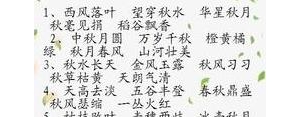 1、西风落叶 望穿秋水 华星秋月
秋毫见捐 稻谷飘香
2、中秋月圆 万岁千秋 橙黄橘
绿 秋月春风 山河壮美
3、秋水长天 金风玉露 秋风习习
秋草枯黄 天朗气清
4、天高云淡 五谷丰登 春秋鼎盛
秋风瑟缩 一丛火红